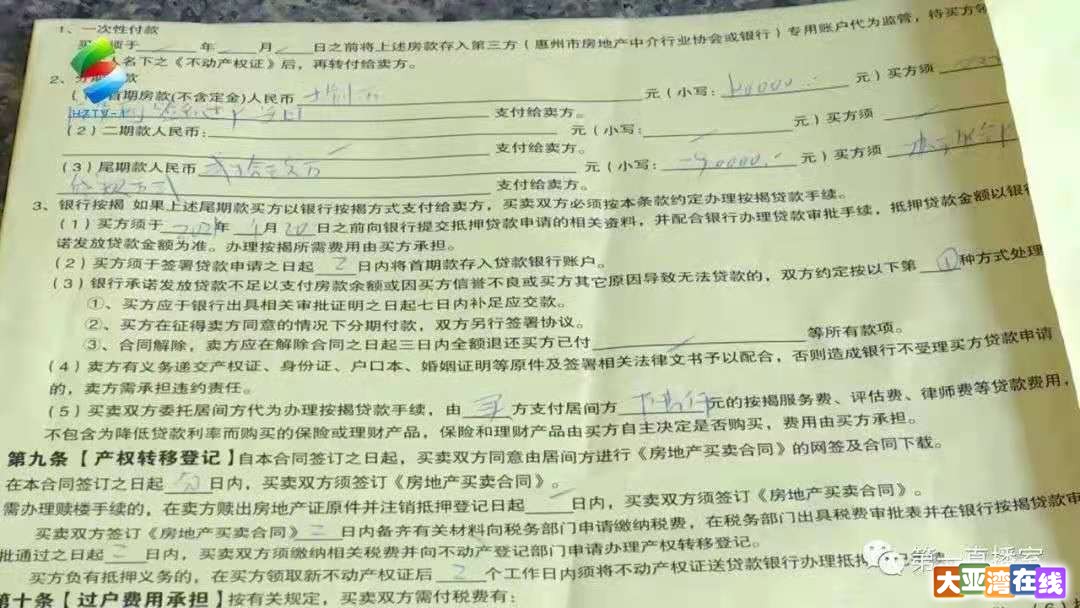 1、一次性付款
买方须于 年 月 日之前将上述房款存入第三方（惠州市房地产中介行业协会或银行）专用账户代为监管，待买方领
人名下之《不动产权证》后，再转付给卖方。
2、分期付款
首期房款(不含定金)人民币 元（小写： 元）买方须
HZTV-1 支付给卖方。
（2）二期款人民币： 元（小写： 元）买方须
支付给卖方。
（3）尾期款人民币 元（小写： 元）买方须
支付给卖方。
3、银行按揭 如果上述尾期款买方以银行按揭方式支付给卖方，买卖双方必须按本条款约定办理按揭贷款手续。
（1）买方须于 年 月 日之前向银行提交抵押贷款申请的相关资料，并配合银行办理贷款审批手续，抵押贷款金额以银行
诺发放贷款金额为准。办理按揭所需费用由买方承担。
（2）买方须于签署贷款申请之日起 2 日内将首期款存入贷款银行账户。
（3）银行承诺发放贷款不足以支付房款余额或因买方信誉不良或买方其它原因导致无法贷款的，双方约定按以下第 ① 种方式处理
①、买方应于银行出具相关审批证明之日起七日内补足应交款。
②、买方在征得卖方同意的情况下分期付款，双方另行签署协议。
③、合同解除，卖方应在解除合同之日起三日内全额退还买方已付 等所有款项。
（4）卖方有义务递交产权证、身份证、户口本、婚姻证明等原件及签署相关法律文书予以配合，否则造成银行不受理买方贷款申请
的，卖方需承担违约责任。
（5）买卖双方委托居间方代为办理按揭贷款手续，由 买 方支付居间方 元的按揭服务费、评估费、律师费等贷款费用，
不包含为降低贷款利率而购买的保险或理财产品，保险和理财产品由买方自主决定是否购买，费用由买方承担。
第九条【产权转移登记】自本合同签订之日起，买卖双方同意由居间方进行《房地产买卖合同》的网签及合同下载。
在本合同签订之日起 日内，买卖双方须签订《房地产买卖合同》。
需办理赎楼手续的，在卖方赎出房地产证原件并注销抵押登记日起 日内，买卖双方须签订《房地产买卖合同》。
买卖双方签订《房地产买卖合同》 三 日内备齐有关材料向税务部门申请缴纳税费，在税务部门出具税费审批表并在银行按揭贷款审
批通过之日起 日内，买卖双方须缴纳相关税费并向不动产登记部门申请办理产权转移登记。
买方负有抵押义务的，在买方领取新不动产权证后 2 个工作日内须将不动产权证送贷款银行办理抵押登记手续
第十条【过户费用承担】按有关规定，买卖双方需付税费有：
第一直播室
大亚湾在线